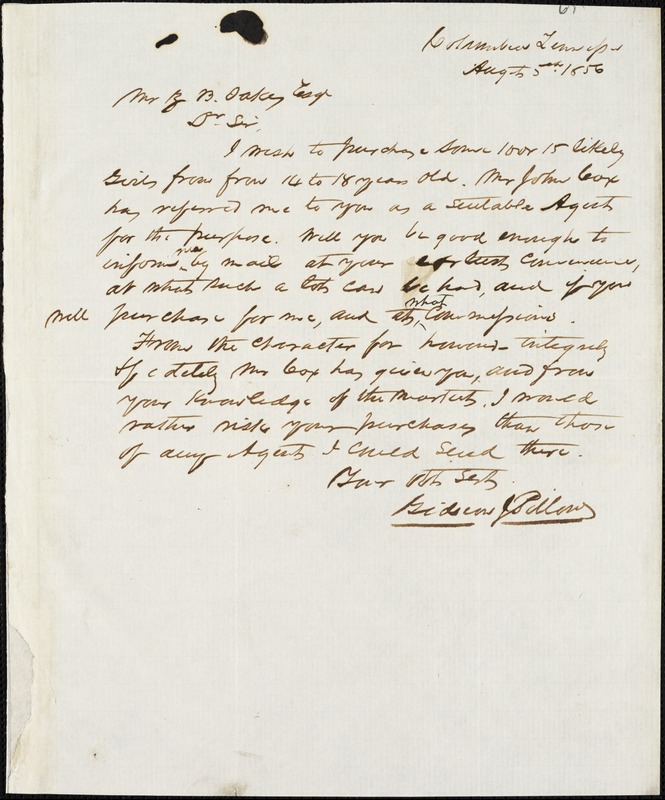 Columbia Tennessee
Augt 5th 1856
Mr Z B. Oakes Esqr
Dr Sir,
I wish to purchase some 10 or 15 likely
Girls from from 14 to 18 years old. Mr John Cox
has referred me to you as a suitable Agent
for the purpose. Will you be good enough to
inform me by mail at your earliest convenience,
at what such a lot can be had, and if you
will purchase for me, and at what Commission.
From the character for honour integrity
& fidelity Mr Cox has given you, and from
your Knowledge of the Markets, I would
rather risk your purchases than those
of any Agent I could send there.
Your obt Sert
Gideon J Pillow